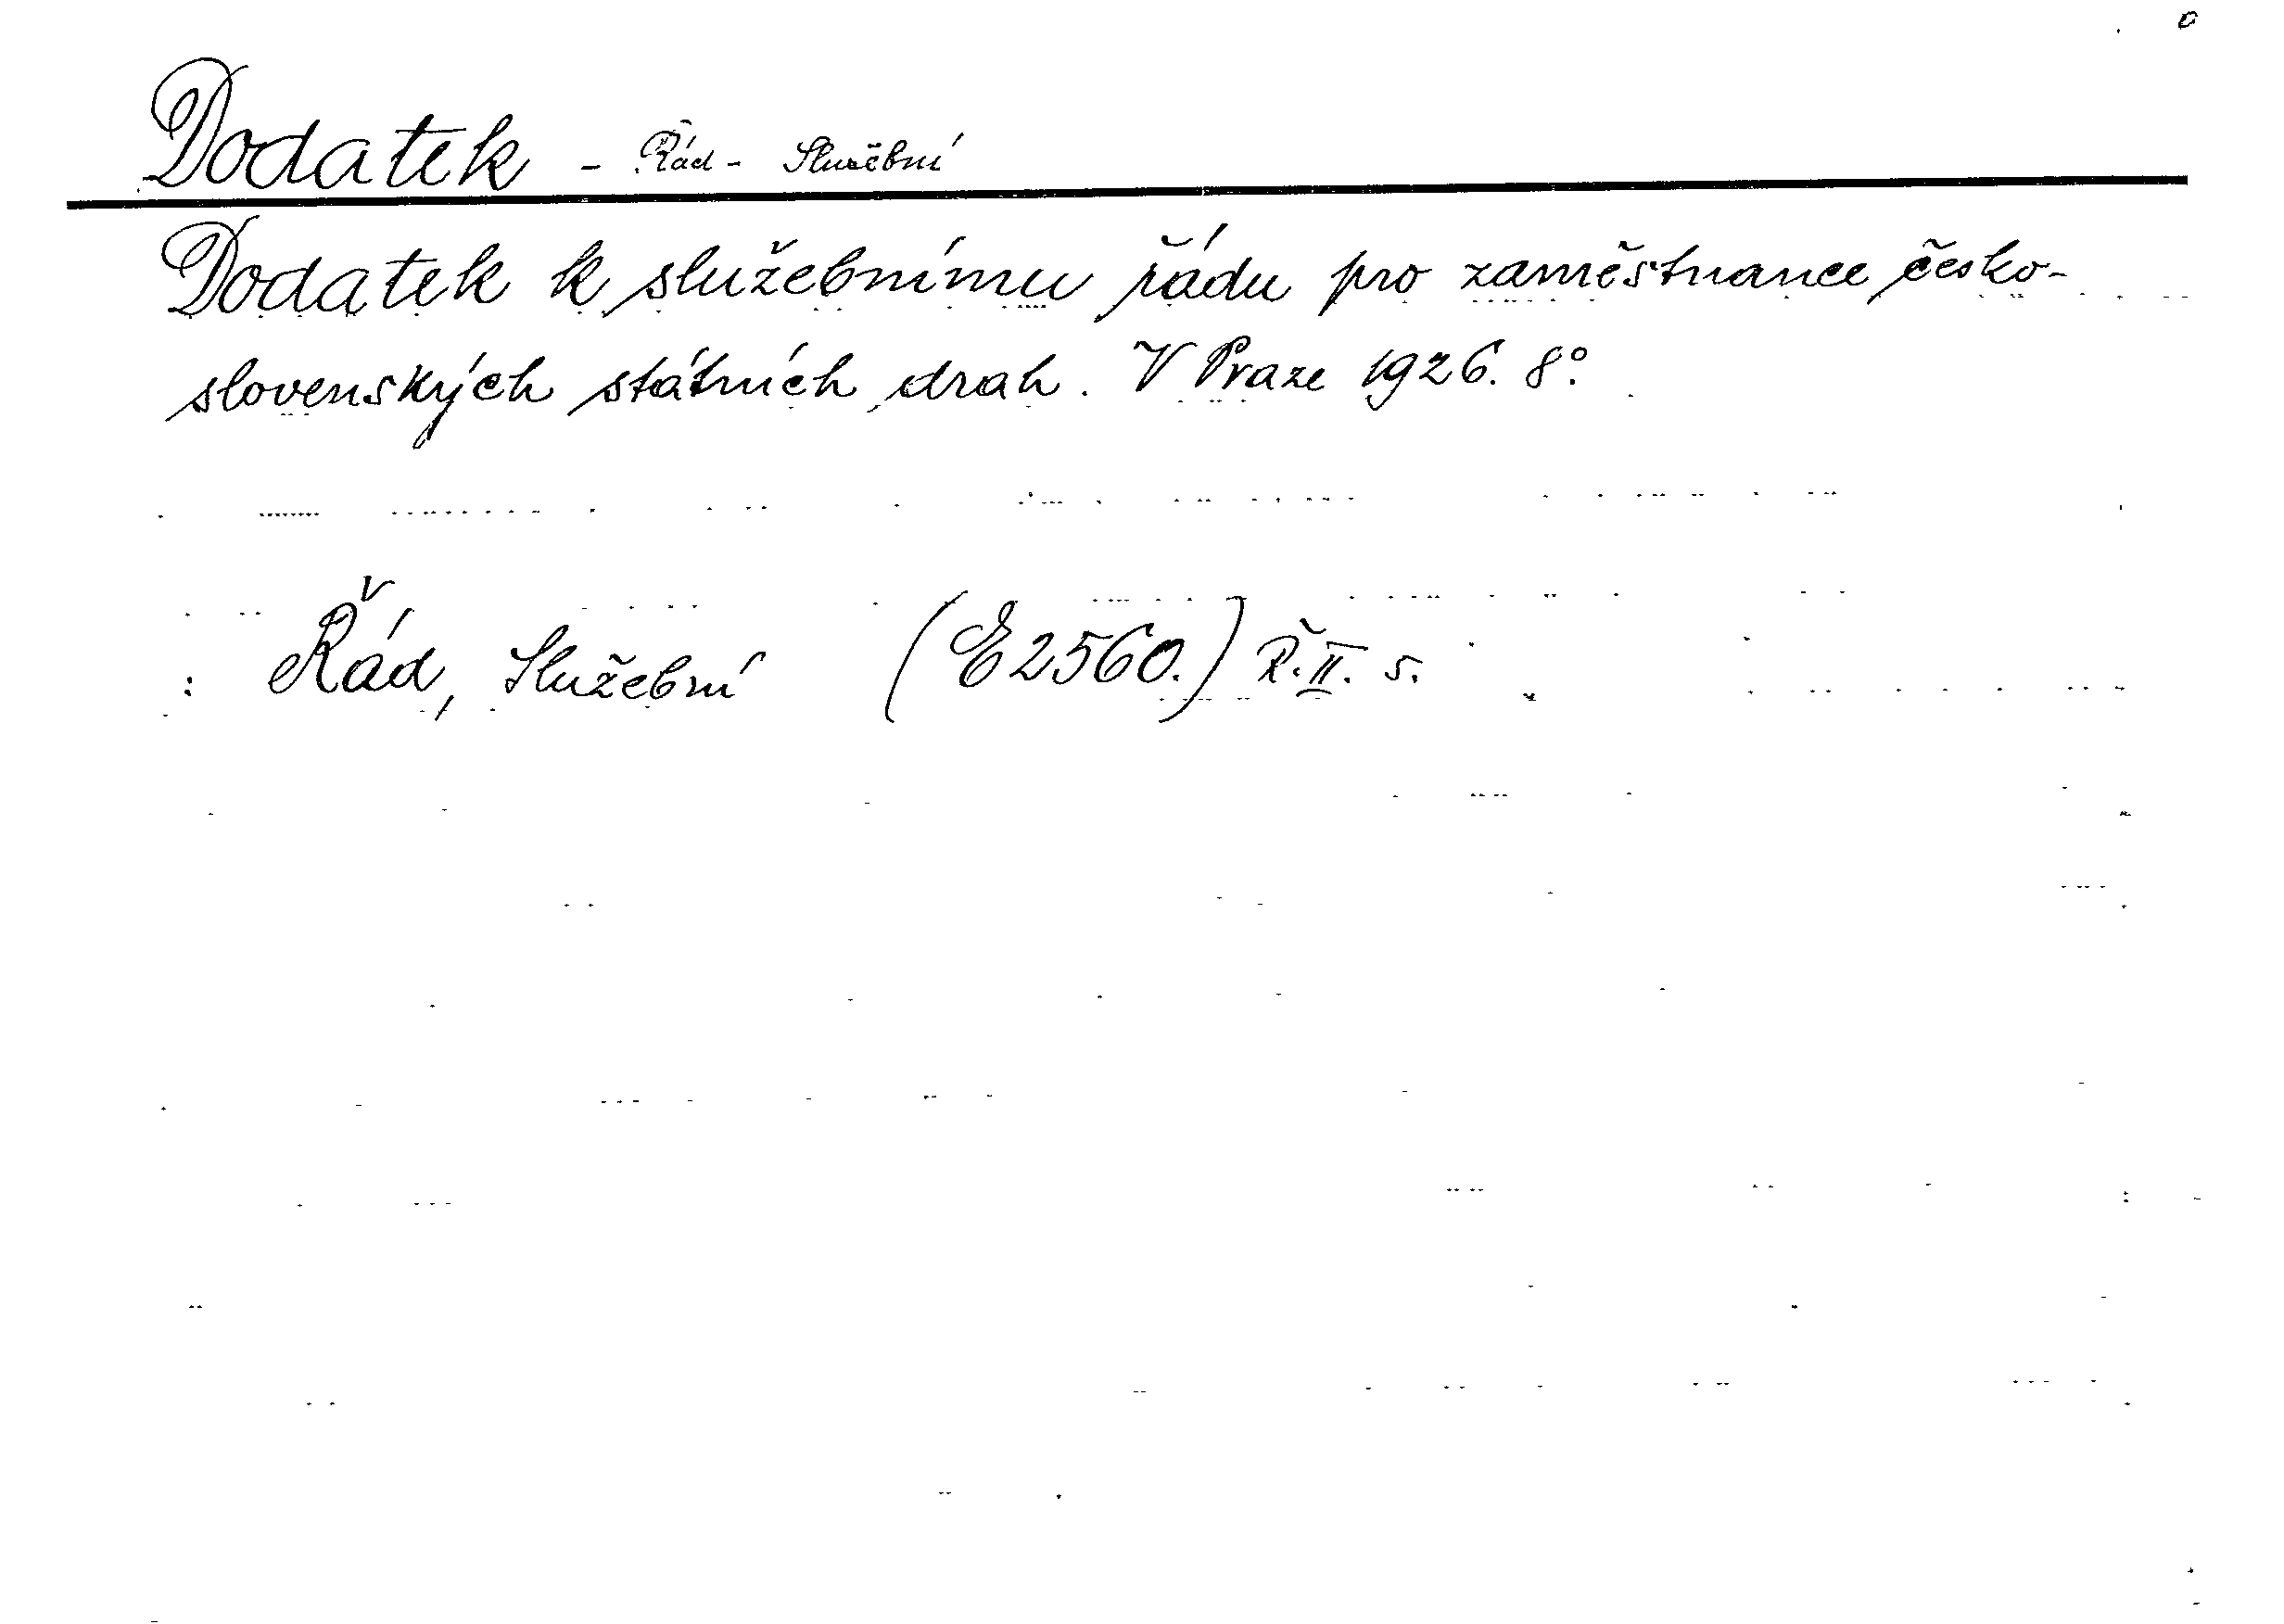 Dodatek - Řád - Služební
Dodatek k služebnímu řádu pro zaměstnance česko-
slovenských státních drah. V Praze 1926. 8°.
: Řád, Služební (E2560.) Ř. II. s.